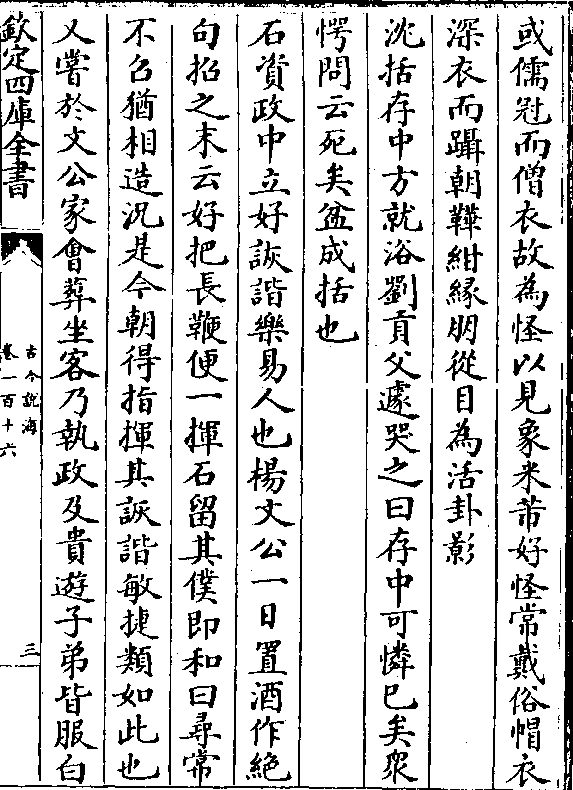 或儒冠而僧衣故為怪以見象米芾好怪常戴俗帽衣
深衣而躡朝鞾紺緣朋從目為活卦影
沈括存中方就浴劉貢父遽哭之曰存中可憐已矣衆
愕問云死矣盆成括也
石資政中立好詼諧樂易人也楊文公一日置酒作絶
句招之末云好把長鞭便一揮石留其僕即和曰尋常
不召猶相造況是今朝得指揮其詼諧敏捷類如此也
又嘗於文公家會葬坐客乃執政及貴遊子弟皆服白
欽定四庫全書
古今說海
卷一百十六
三